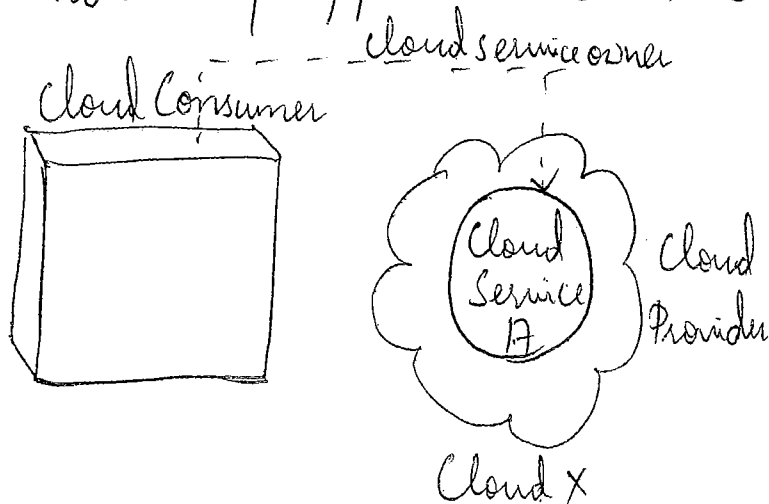 Cloud service owner
Cloud Consumer
Cloud
Service
A
Cloud
Provider
Cloud X